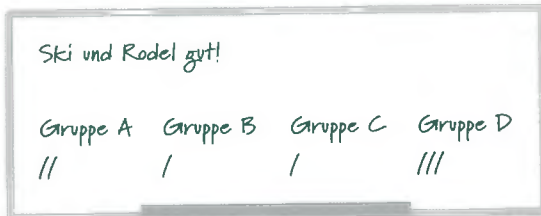 Ski und Rodel gut!
Gruppe A Gruppe B Gruppe C Gruppe D
// / / ///